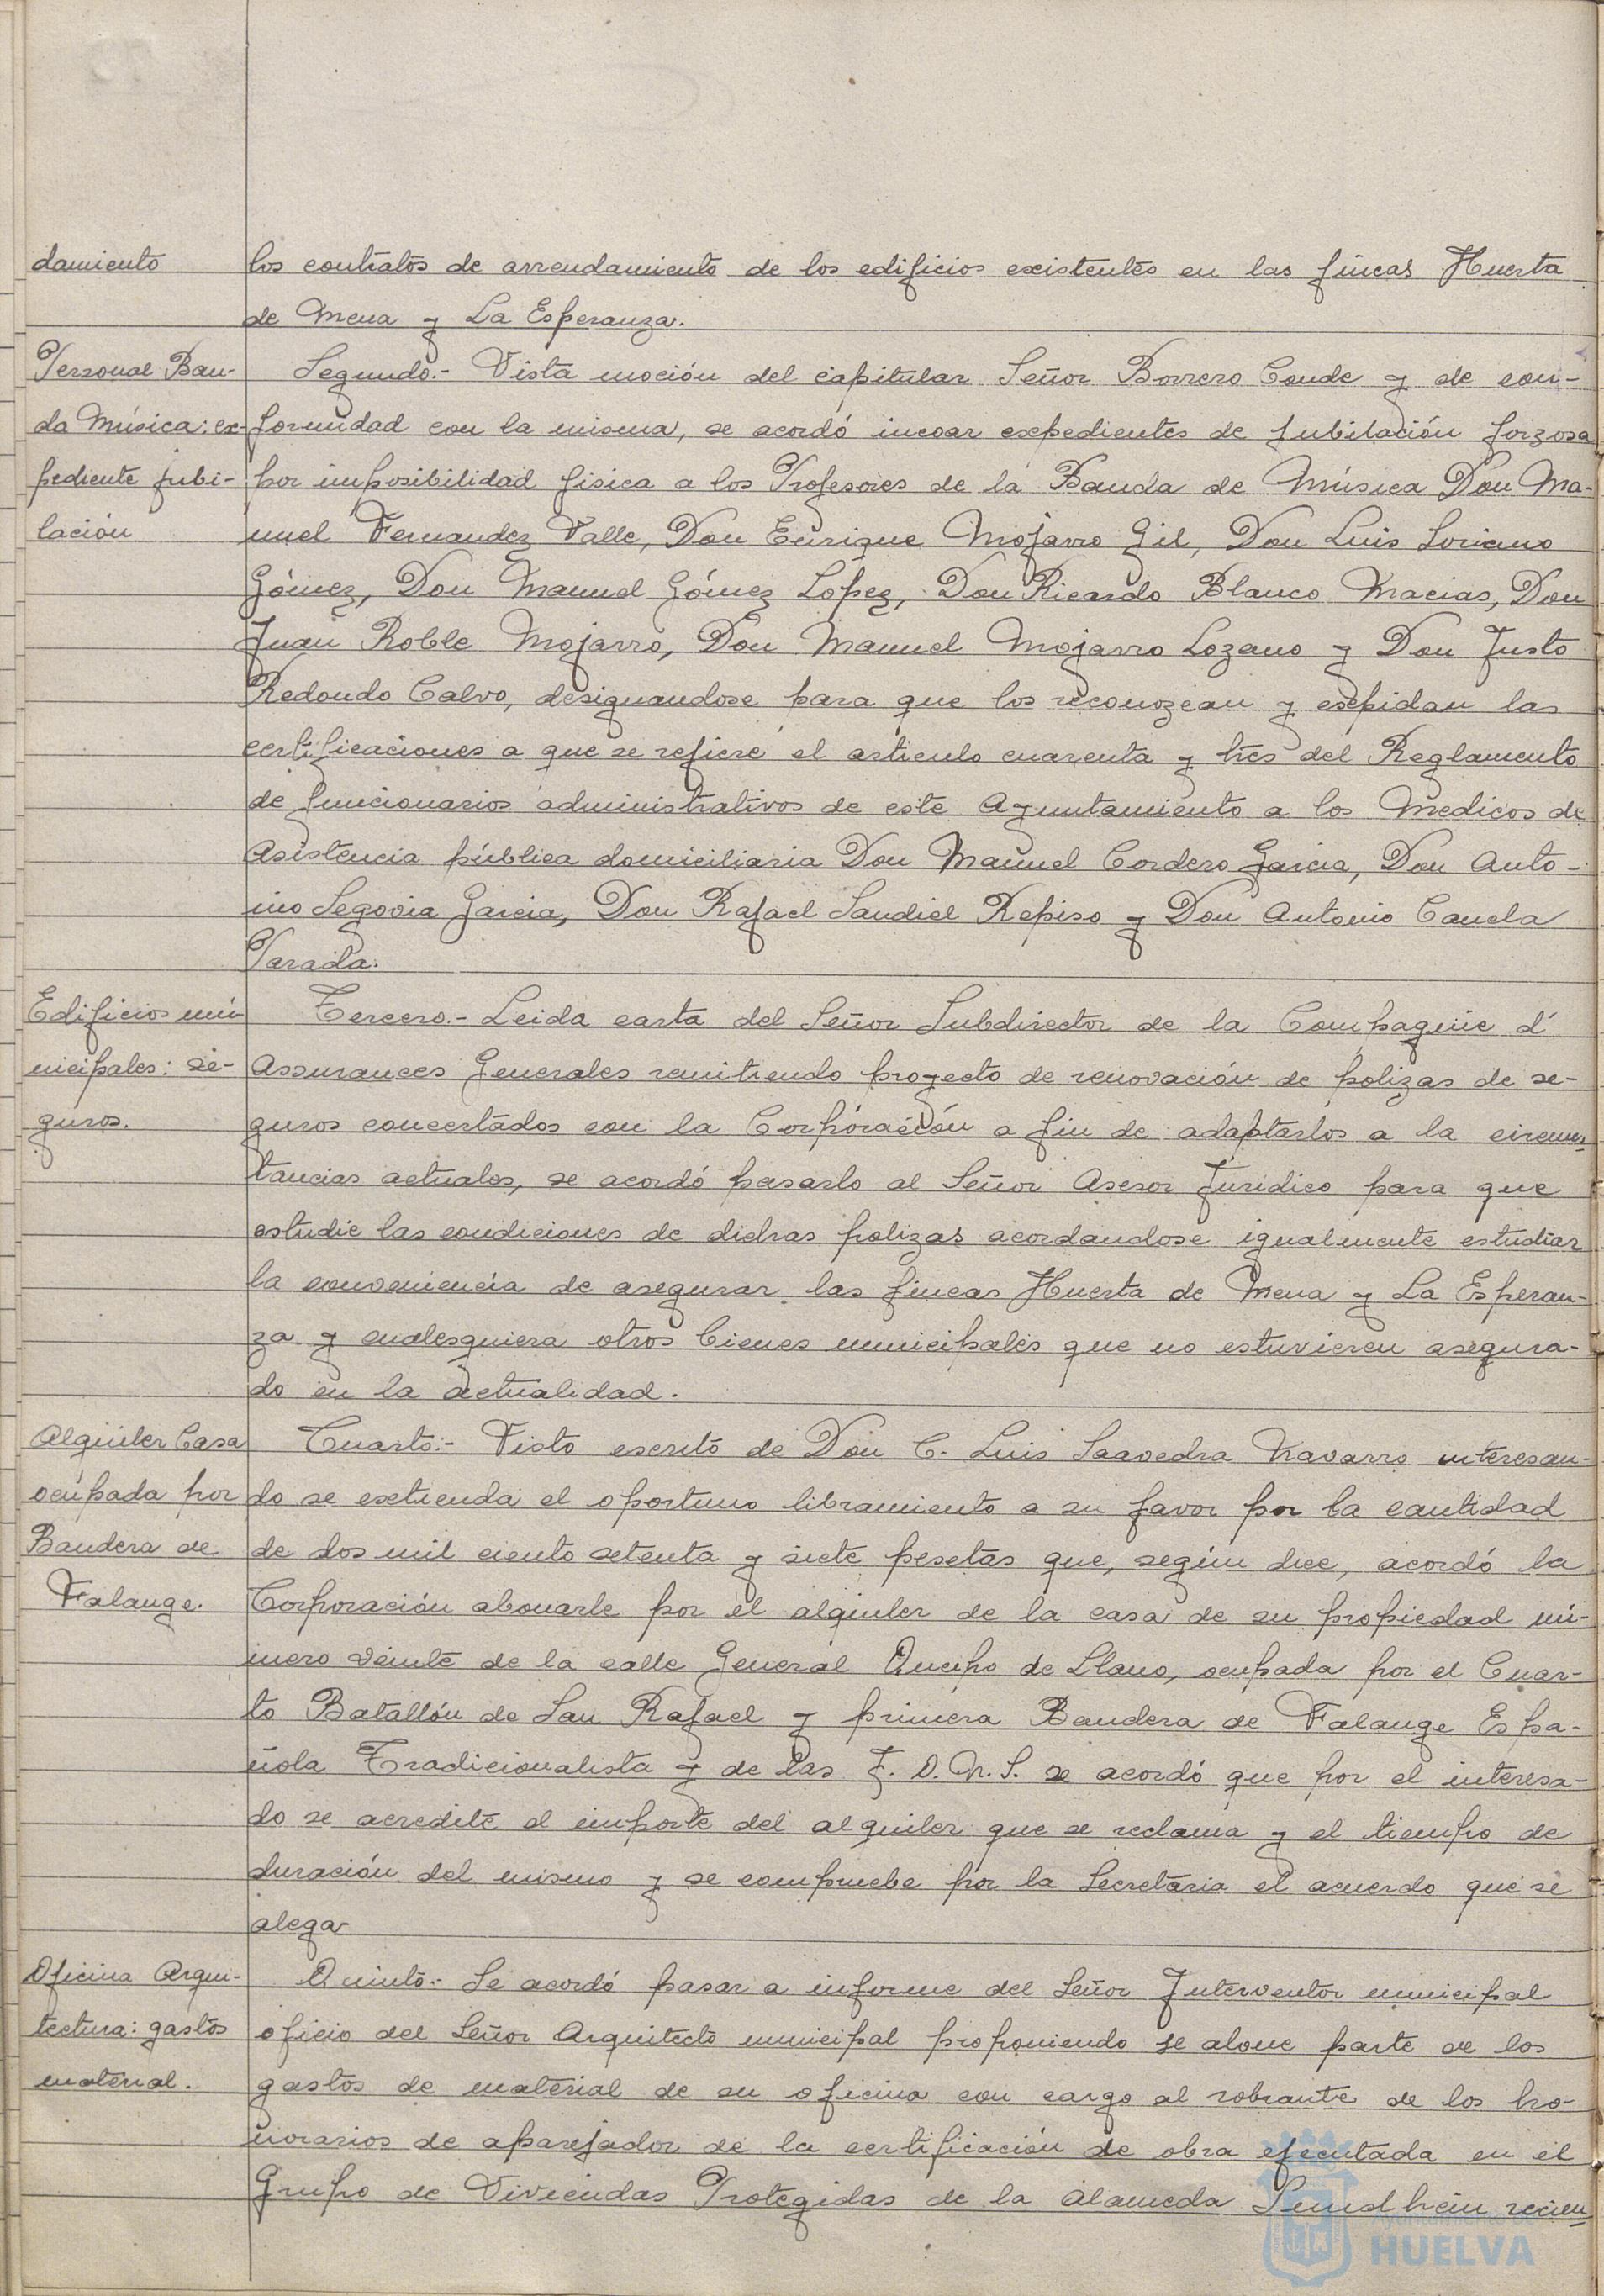 damiento
los contratos de arrendamiento de los edificios existentes en las fincas Huerta
de Mena y La Esperanza.
Personal Ban-
da Música: ex-
pediente jubi-
lación
Segundo.- Vista moción del capitular Señor Borrero Conde y de con-
formidad con la misma, se acordó incoar expedientes de jubilación forzosa
por imposibilidad fisica a los Profesores de la Banda de Música Don Ma-
nuel Fernandez Valle, Don Enrique Mojarro Gil, Don Luis Soriano
Gómez, Don Manuel Gómez López, Don Ricardo Blanco Macias, Don
Juan Roble Mojarro, Don Manuel Mojarro Lozano y Don Justo
Redondo Calvo, designandose para que los reconozcan y expidan las
certificaciones a que se refiere el articulo cuarenta y tres del Reglamento
de funcionarios administrativos de este Ayuntamiento a los Medicos de
Asistencia pública domiciliaria Don Manuel Cordero Garcia, Don Anto-
nio Segovia Garcia, Don Rafael Sandiel Repiso y Don Antonio Canela
Parada.
Edificios mu-
nicipales: se-
guros.
Tercero.- Leida carta del Señor Subdirector de la Compagnie d'
Assurances Generales remitiendo proyecto de renovación de polizas de se-
guros concertados con la Corporación a fin de adaptarlos a la circuns-
tancias actuales, se acordó pasarlo al Señor Asesor Juridico para que
estudie las condiciones de dichas polizas acordandose igualmente estudiar
la conveniencia de asegurar las fincas Huerta de Mena y La Esperan-
za y cualesquiera otros bienes municipales que no estuvieren asegura-
do en la actualidad.
Alquiler Casa
ocupada por
Bandera de
Falange.
Cuarto.- Visto escrito de Don C. Luis Saavedra Navarro interesan-
do se extienda el oportuno libramiento a su favor por la cantidad
de dos mil ciento setenta y siete pesetas que, según dice, acordó la
Corporación abonarle por el alquiler de la casa de su propiedad nú-
mero veinte de la calle General Queipo de Llano, ocupada por el Cuar-
to Batallón de San Rafael y primera Bandera de Falange Espa-
ñola Tradicionalista y de las J. O. N. S. se acordó que por el interesa-
do se acredite el importe del alquiler que se reclama y el tiempo de
duración del mismo y se compruebe por la Secretaria el acuerdo que se
alega
Oficina Arqui-
tectura: gastos
material.
Quinto.- Se acordó pasar a informe del Señor Interventor municipal
oficio del Señor Arquitecto municipal proponiendo se abone parte de los
gastos de material de su oficina con cargo al sobrante de los ho-
norarios de aparejador de la certificación de obra ejecutada en el
Grupo de Viviendas Protegidas de la Alameda Sundheim recien-
HUELVA